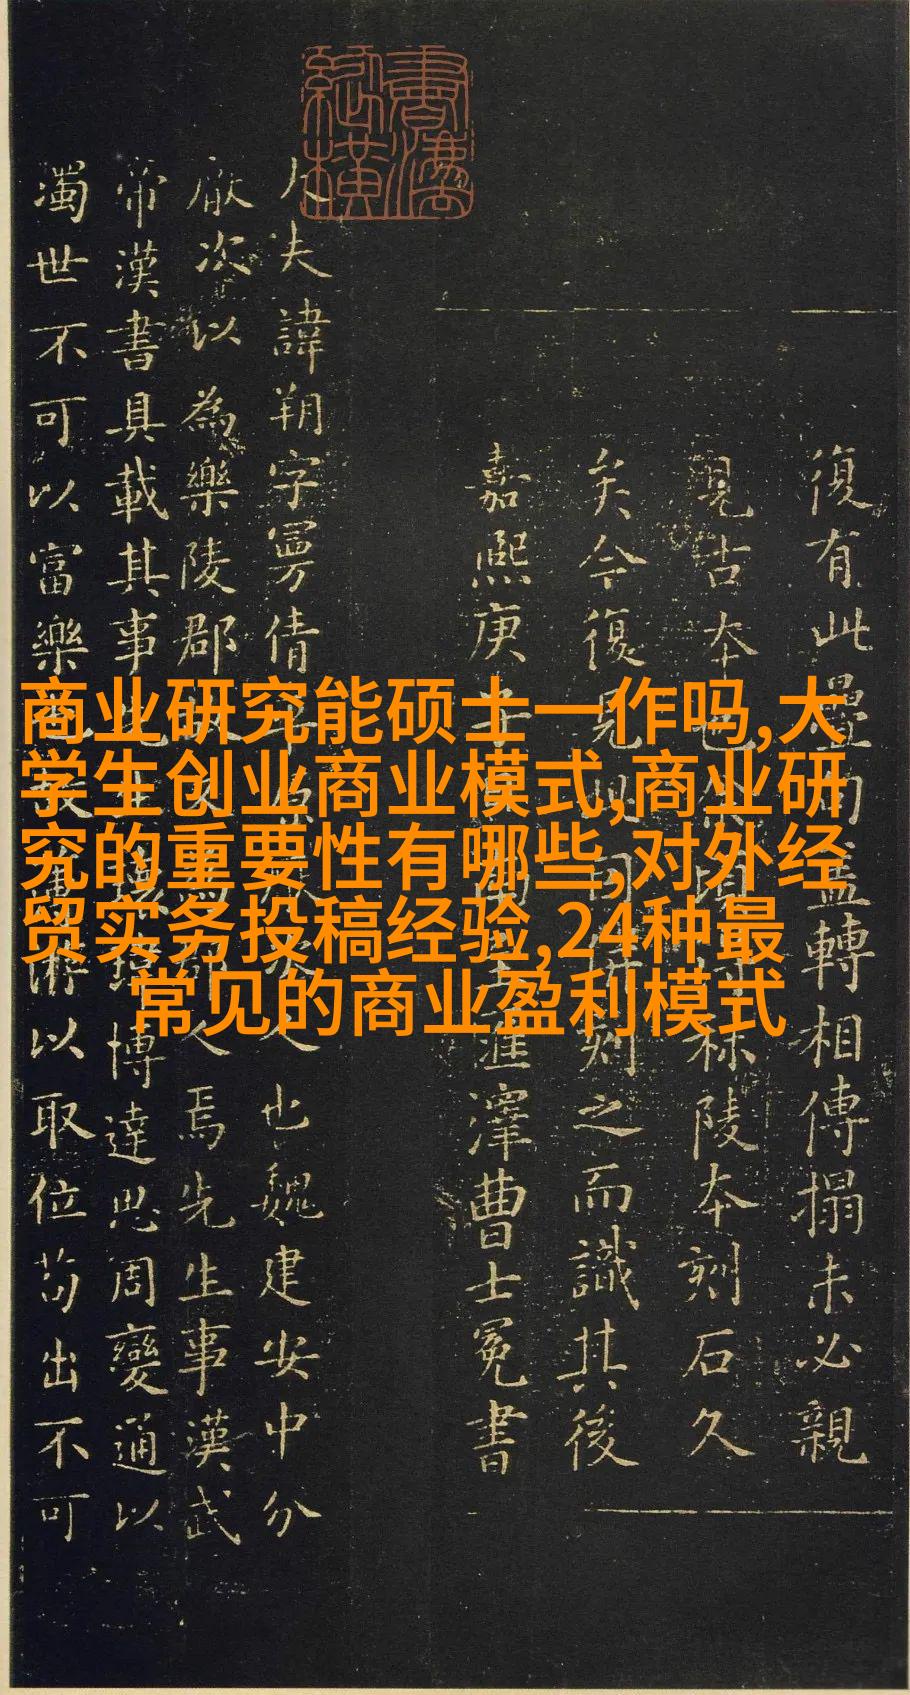 商业研究能硕士一作吗,大
学生创业商业模式,商业研
究的重要性有哪些,对外经
贸实务投稿经验,24种最
常见的商业盈利模式
復有此轉相傳搨未必親
見古本也秣陵本刻石久
矣今復見刻之而識其後
嘉熙庚子滙澤曹士冕書
夫諱朔字曼倩平原厭次人也魏建安中分
厭次以為樂陵郡故又為郡人焉先生事漢武
帝漢書具載其事先生瓌瑋博達思周變通以
濁世不可以富樂也故薄游以取位苟出不可